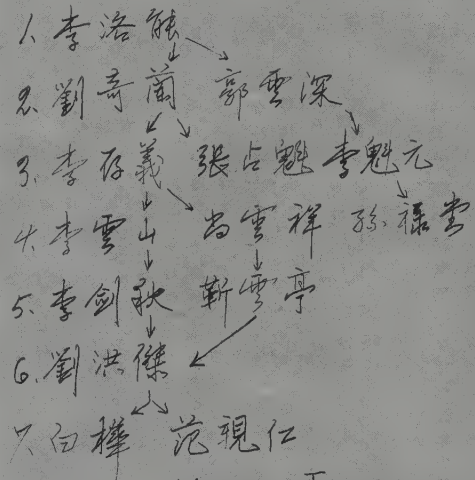 1、李洛能
2、劉奇蘭 郭雲深
3、李存義 張占魁 李魁元
4、李雲山 尚雲祥 孫祿堂
5、李劍秋 靳雲亭
6、劉洪傑
7、白樺 范視仁